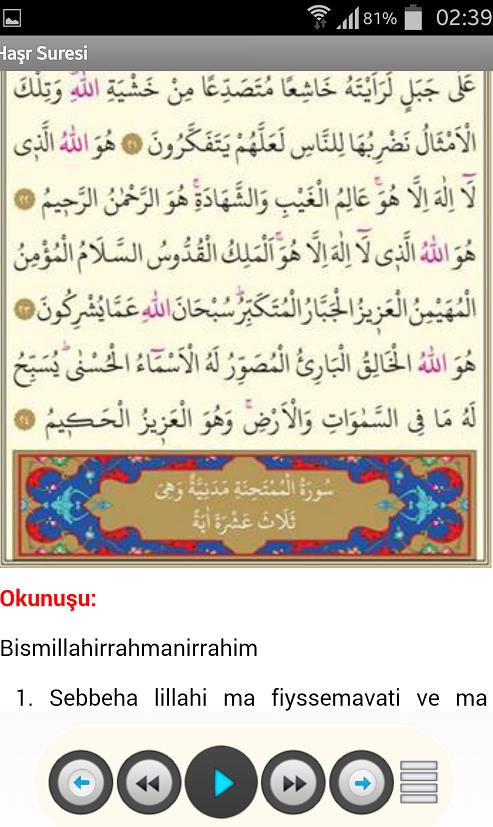 81% 02:39
Haşr Suresi
عَلٰى جَبَلٍ لَرَاَيْتَهُ خَاشِعًا مُتَصَدِّعًا مِنْ خَشْيَةِ اللّٰهِ وَتِلْكَ
الْاَمْثَالُ نَضْرِبُهَا لِلنَّاسِ لَعَلَّهُمْ يَتَفَكَّرُونَ ﴿٢١﴾ هُوَ اللّٰهُ الَّذ۪ى
لَٓا اِلٰهَ اِلَّا هُوَۚ عَالِمُ الْغَيْبِ وَالشَّهَادَةِۚ هُوَ الرَّحْمٰنُ الرَّح۪يمُ ﴿٢٢﴾
هُوَ اللّٰهُ الَّذ۪ى لَٓا اِلٰهَ اِلَّا هُوَۚ اَلْمَلِكُ الْقُدُّوسُ السَّلَامُ الْمُؤْمِنُ
الْمُهَيْمِنُ الْعَز۪يزُ الْجَبَّارُ الْمُتَكَبِّرُۜ سُبْحَانَ اللّٰهِ عَمَّا يُشْرِكُونَ ﴿٢٣﴾
هُوَ اللّٰهُ الْخَالِقُ الْبَارِئُ الْمُصَوِّرُ لَهُ الْاَسْمَٓاءُ الْحُسْنٰىۜ يُسَبِّحُ
لَهُ مَا فِى السَّمٰوَاتِ وَالْاَرْضِۚ وَهُوَ الْعَز۪يزُ الْحَك۪يمُ ﴿٢٤﴾
سُورَةُ الْمُمْتَحِنَةِ مَدَنِيَّةٌ وَهِىَ
ثَلَاثَ عَشْرَةَ اٰيَةً
Okunuşu:
Bismillahirrahmanirrahim
1. Sebbeha lillahi ma fiyssemavati ve ma